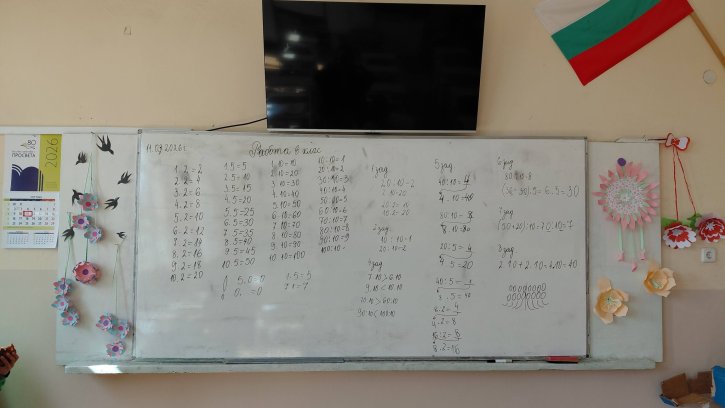 80
ПРОСВЕТА
2026
11.03.2026 г.
Работа в клас
1.2=2
2.2=4
3.2=6
4.2=8
5.2=10
6.2=12
7.2=14
8.2=16
9.2=18
10.2=20
1.5=5
2.5=10
3.5=15
4.5=20
5.5=25
6.5=30
7.5=35
8.5=40
9.5=45
10.5=50
5.0=0
1.5=5
7.1=7
1.10=10
2.10=20
3.10=30
4.10=40
5.10=50
6.10=60
7.10=70
8.10=80
9.10=90
10.10=100
10:10=1
20:10=2
30:10=3
40:10=4
50:10=5
60:10=6
70:10=7
80:10=8
90:10=9
1 зад
20:10=2
2.10=20
2 зад
10:10=1
20:10=2
4 зад
7.10>6.10
9.10<10.10
5 зад
40:10=4
4.10=40
80:10=8
8.10=80
20:5=4
4.5=20
40:5=
.5=40
8:2=4
4.2=8
16:2=8
8.2=16
6 зад
80:10=8
(36-30).5=6.5=30
7 зад
(50+20):10=70:10=7
8 зад
2.10+2.10=4.10=40